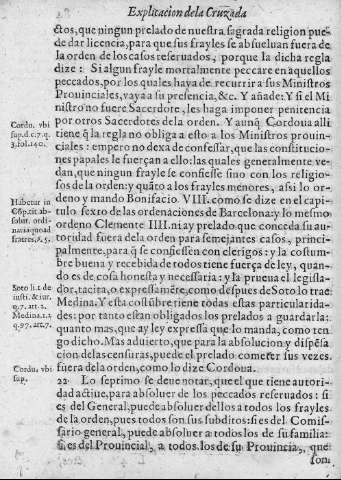 Explicacion de la Cruzada
ctos, que ningun prelado de nuestra sagrada religion pue-
de dar licencia, para que sus frayles se absueluan fuera de
la orden de los casos reseruados, porque la dicha regla
dize: Si algun frayle mortalmente peccare en aquellos
peccados, por los quales haya de recurrir a sus Ministros
Prouinciales, vaya a su presencia, &c. Y añade: Y si el Mi
nistro no fuere Sacerdote, les haga imponer penitencia
por otros Sacerdotes de la orden. Y aunq̃ Cordoua alli
tiene q̃ la regla no obliga a esto a los Ministros prouin-
ciales: empero no dexa de confessar, que las constitucio-
nes papales le fuerçan a ello: las quales generalmente ve-
dan, que ningun frayle se confiesse sino con los religio-
sos de la orden: y quãto a los frayles menores, assi lo or-
deno y mando Bonifacio VIII. como se dize en el capi-
tulo sexto de las ordenaciones de Barcelona: y lo mesmo
ordeno Clemente IIII. ni ay prelado que conceda su au-
toridad fuera dela orden para semejantes casos, princi-
palmente, para q̃ se confiessen con clerigos: y la costum-
bre buena y recebida de todos tiene fuerça de ley, quan-
do es de cosa honesta y necessaria: y la prueua el legisla-
dor, tacita, o expressamẽte, como despues de Soto lo trae
Medina. Y esta costũbre tiene todas estas particularida-
des: por tanto estan obligados los prelados a guardarla:
quanto mas, que ay ley expressa que lo manda, como ten
go dicho. Mas aduierto, que para la absolucion y dispẽsa
cion de las censuras, puede el prelado cometer sus vezes
fuera dela orden, como lo dize Cordoua.
22 Lo septimo se deue notar, que el que tiene autori-
dad actiue, para absoluer de los peccados reseruados: si
es del General, puede absoluer dellos a todos los frayles
de la orden, pues todos son sus subditos: si es del Comis-
sario general, puede absoluer a todos los de su familia:
si es del Prouincial, a todos los de su Prouincia, que
son
Cordu. vbi
sup. d. c. 7. q.
3. fol. 140.
Habetur in
absolut. ordi-
naria quoad
fratres, §. 5.
Soto li. 1. de
iusti. & iur.
q. 7. art. 2.
Medina. 1. 2
q. 97. art. 7.
Cordu. vbi
sup.